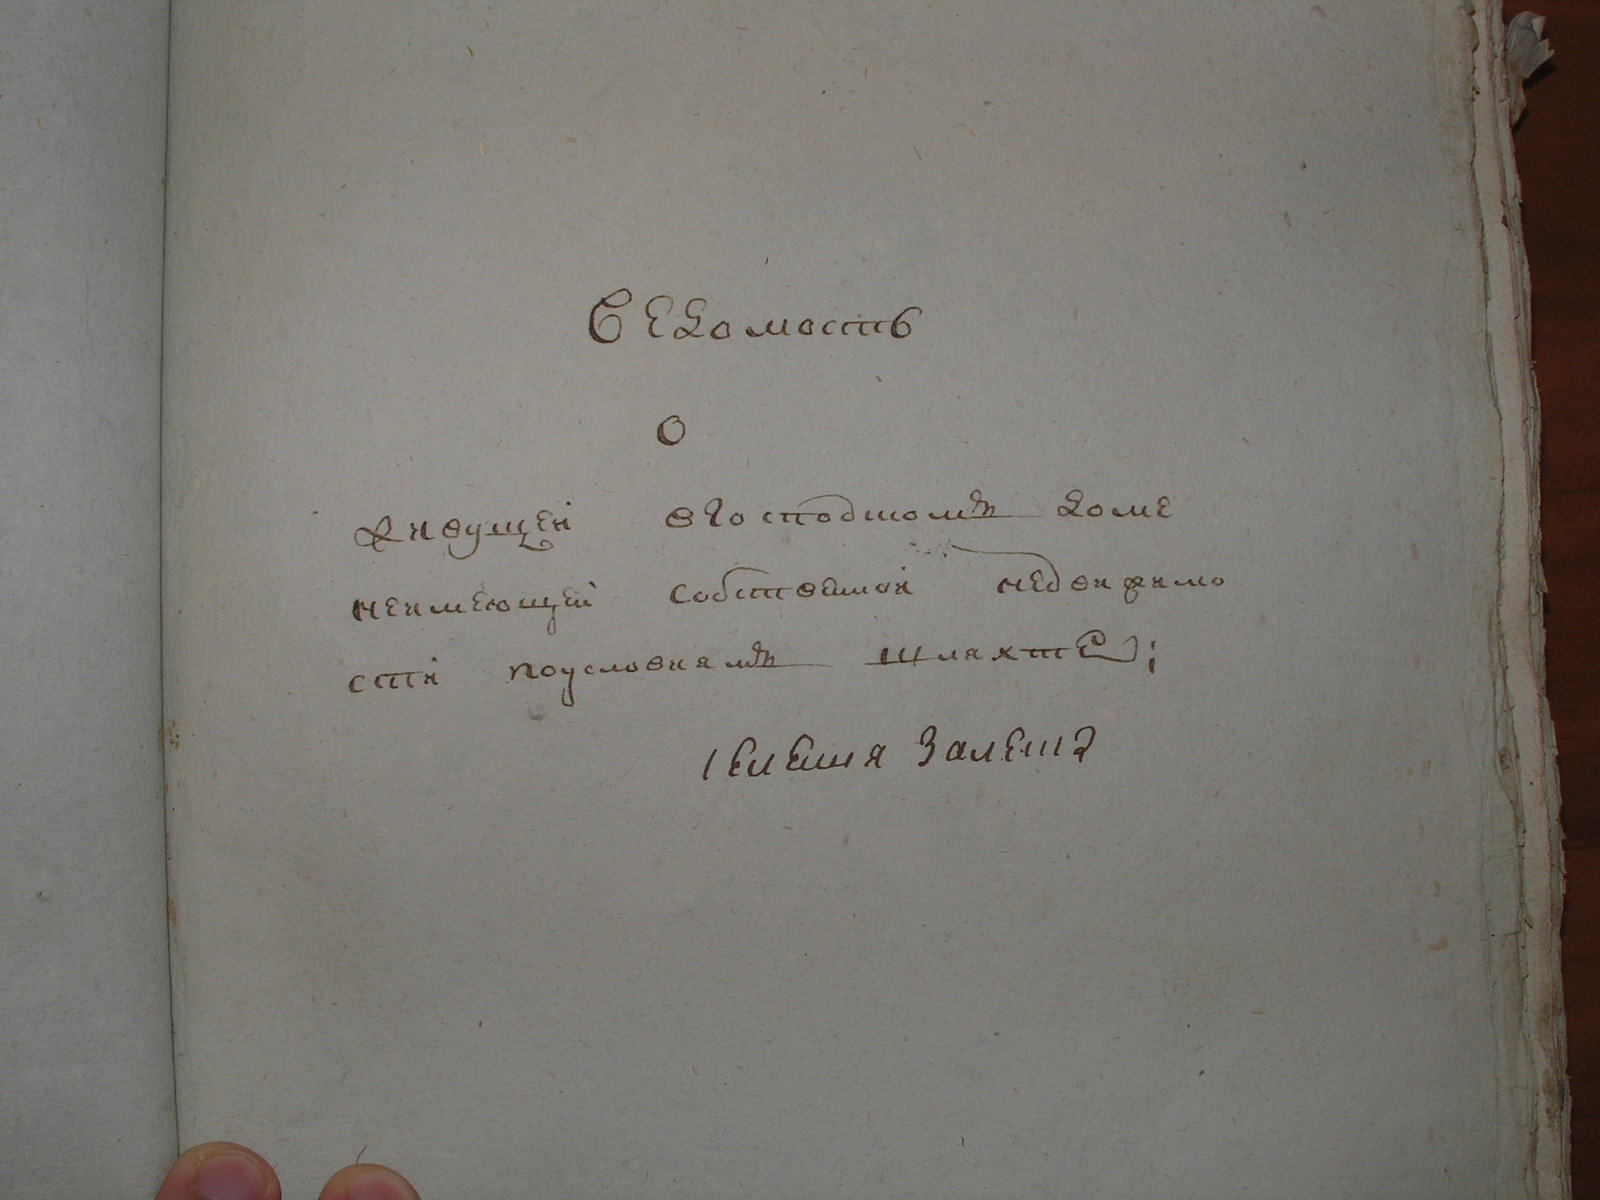 Ведомость
О
живущей вгосподскомъ доме
неимеющей собственой недвижимо
сти поусловиямъ шляхте;
Залеш